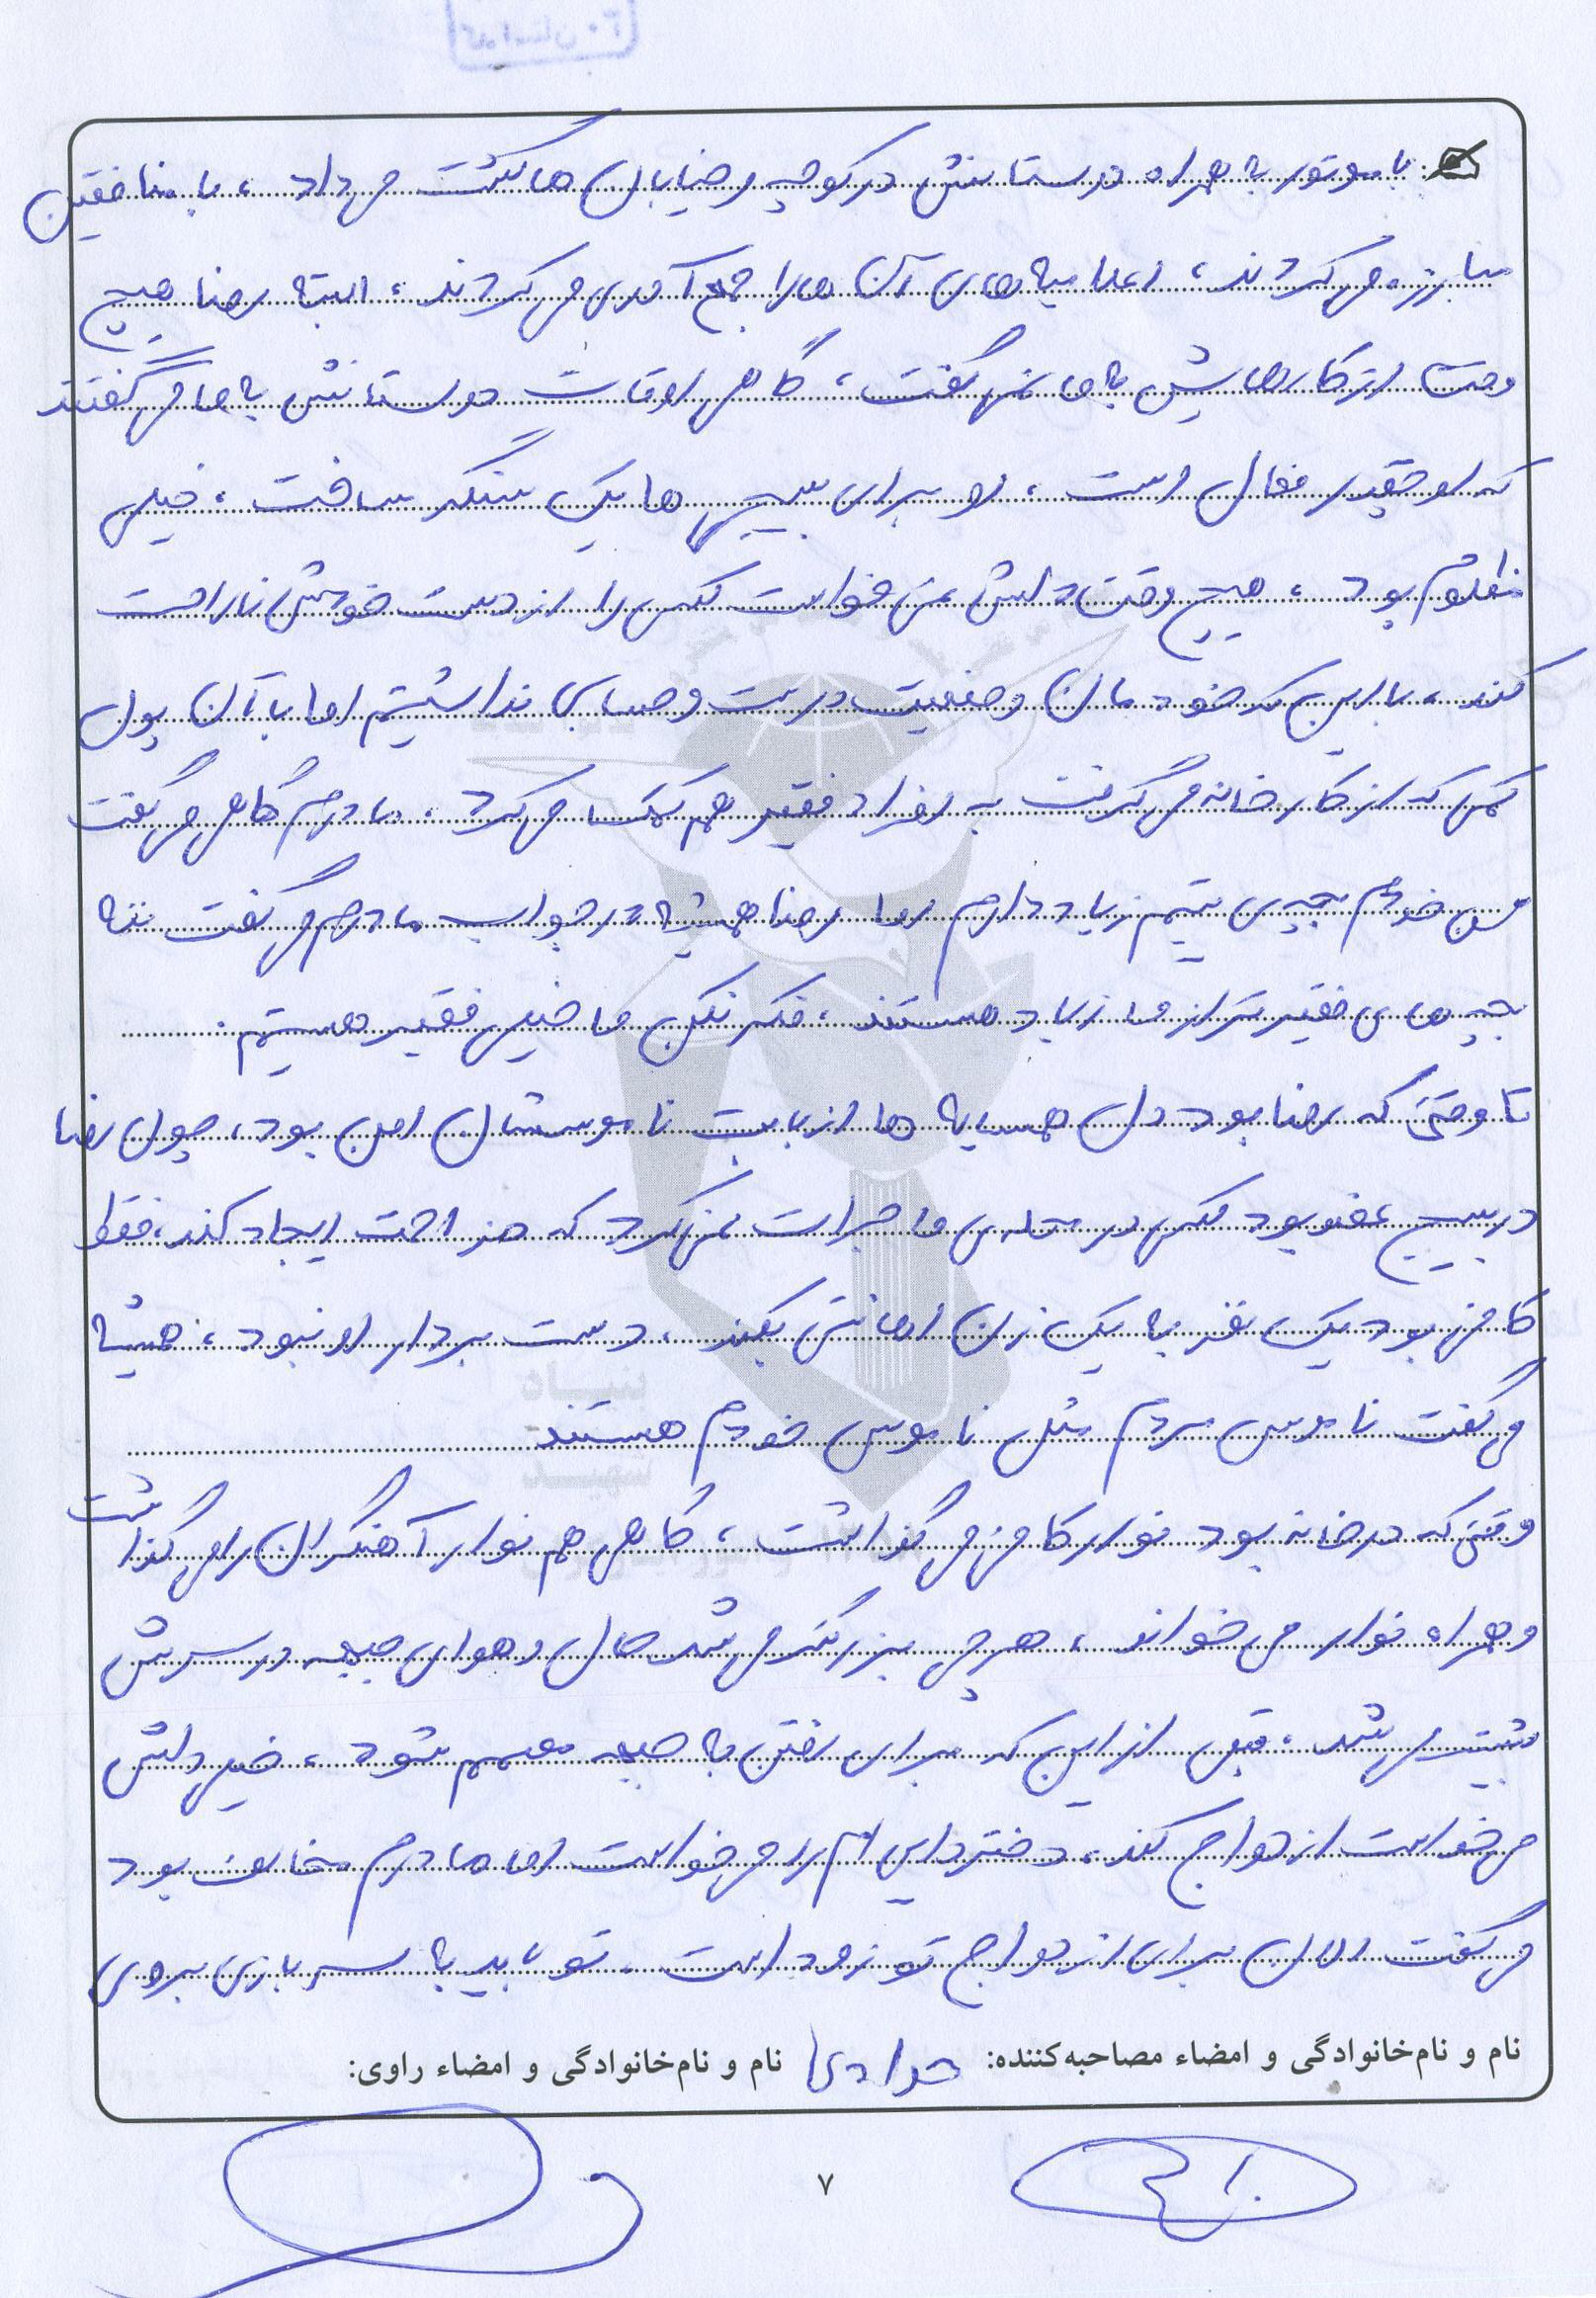 با موتور به همراه دوستانش در کوچه و خیابان ها گشت می داد ، با منافقین
مبارزه می کردند ، اعلامیه های آن ها را جمع آوری می کردند ، البته رضا هیچ
وقت از کارهایش به ما نمی گفت ، گاهی اوقات دوستانش به ما می گفتند
که او چقدر فعال است ، او برای بسیجی ها یک سنگر ساخت ، خیلی
مظلوم بود ، هیچ وقت دلش نمی خواست کسی را از دست خودش ناراحت
کند ، با این که خودمان وضعیت درست و حسابی نداشتیم اما با آن پول
کمی که از کارخانه می گرفت به افراد فقیر هم کمک می کرد ، مادرم گاهی می گفت
من خودم بچه ی یتیم زیاد دارم اما رضا همیشه در جواب مادرم می گفت ننه
بچه های فقیرتر از ما زیاد هستند ، فکر نکن ما خیلی فقیر هستیم .
تا وقتی که رضا بود دل همسایه ها از بابت ناموسشان امن بود ، چون رضا
در بسیج عضو بود کسی در محله ی ما جرات نمی کرد که مزاحمت ایجاد کند ، فقط
کافی بود یک نفر به یک زن اهانتی بکند ، دست بردار او نبود ، همیشه
می گفت ناموس مردم مثل ناموس خودم هستند
وقتی که در خانه بود نوار کافی می گذاشت ، گاهی هم نوار آهنگران را می گذاشت
و همراه نوار می خواند ، هر چی بزرگتر می شد حال و هوای جبهه در سرش
بیشتر می شد ، قبل از این که برای رفتن به جبهه مصمم شود ، خیلی دلش
می خواست ازدواج کند ، دختر دایی ام را می خواست اما مادرم مخالف بود
می گفت الان برای ازدواج تو زود است . تو باید به سربازی بروی
نام و نام‌خانوادگی و امضاء مصاحبه‌کننده: نام و نام‌خانوادگی و امضاء راوی:
۷